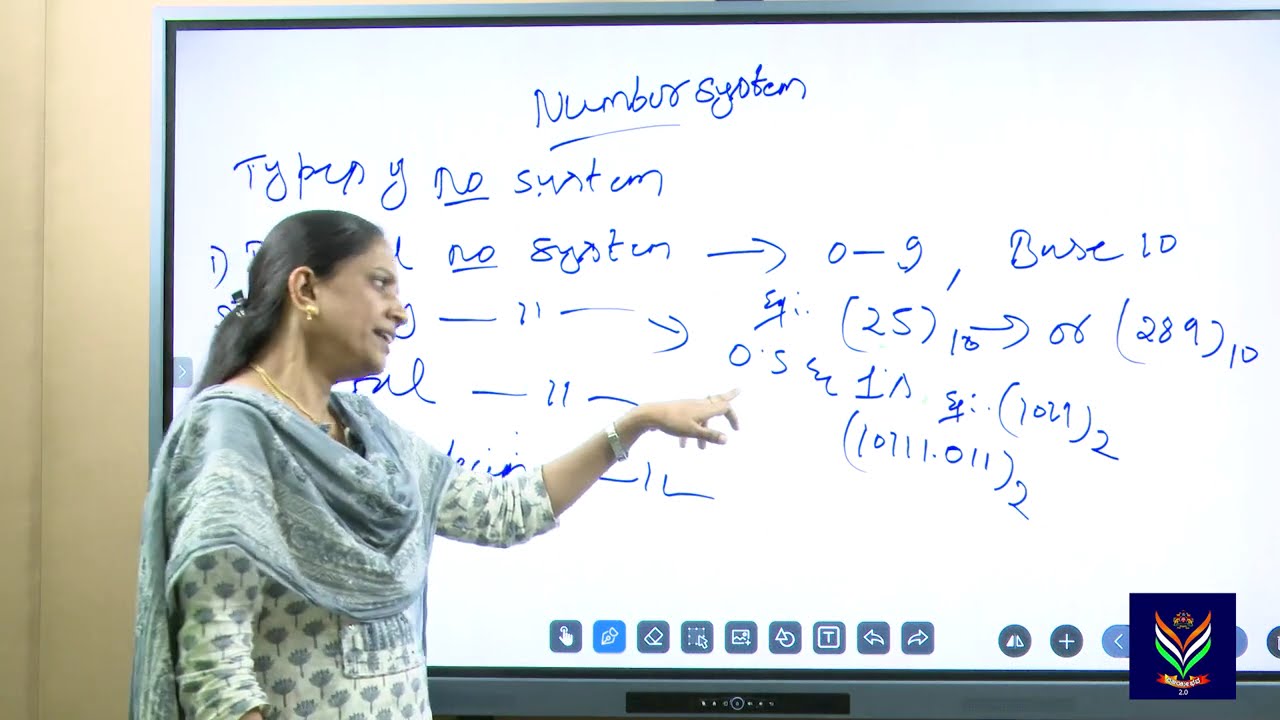 Number system
Types of no system
1) no system → 0 - 9, Base 10
— 11 — → Eg:. (25)10 → or (289)10
0's & 1's Eg:. (1021)2
— 11 —
(10111.011)2
— 11 —
T
2.0